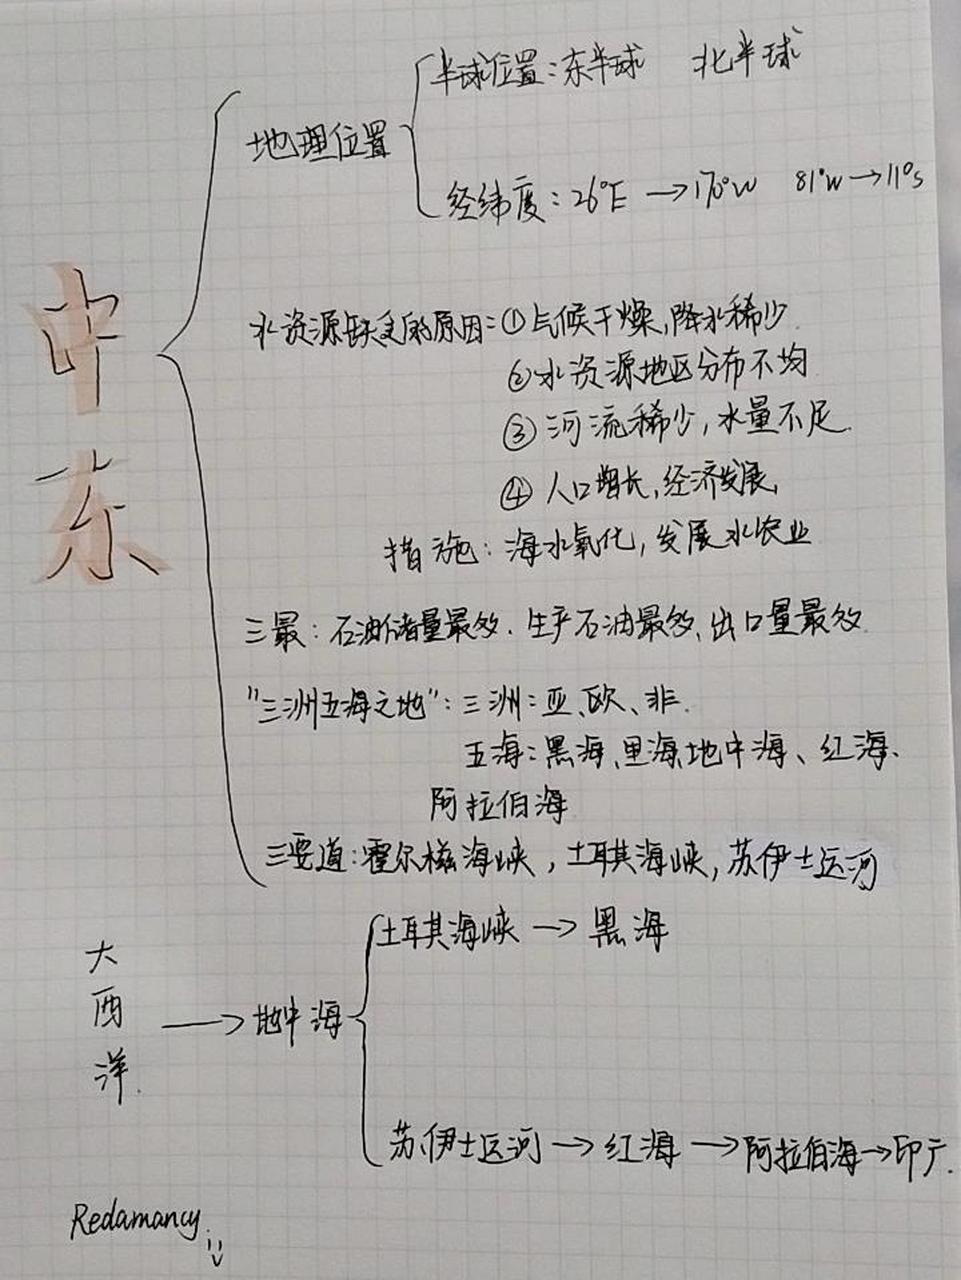 中东
地理位置
半球位置：东半球 北半球
经纬度：26°E→170°W 81°W→11°S
水资源缺乏的原因：①气候干燥,降水稀少.
②水资源地区分布不均
③河流稀少,水量不足.
④人口增长,经济发展,
措施：海水氧化,发展水农业
三最：石油储量最多.生产石油最多,出口量最多.
"三洲五海之地"：三洲：亚、欧、非.
五海：黑海、里海,地中海、红海、
阿拉伯海
三要道：霍尔木兹海峡,土耳其海峡,苏伊士运河
大西洋.→地中海
土耳其海峡→黑海
苏伊士运河→红海→阿拉伯海→印广.
Redamancy.